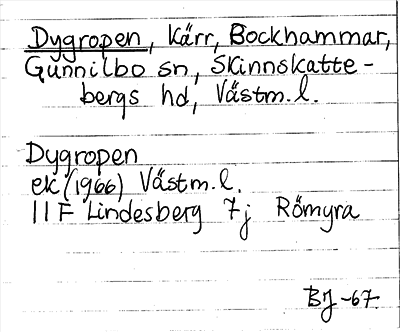 Dygropen, Kärr, Bockhammar,
Gunnilbo sn, Skinnskatte-
bergs hd, Västm.l.
Dygropen
ek (1966) Västm.l.
11F Lindesberg 7j Römyra
BJ-67.